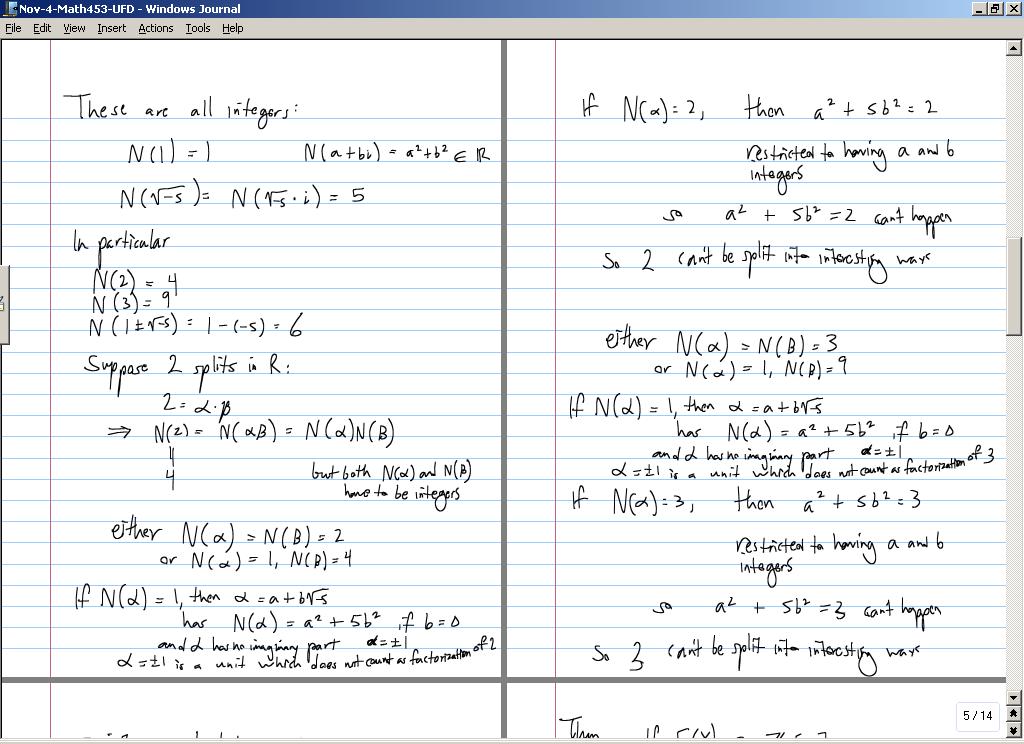 Nov-4-Math453-UFD - Windows Journal
File Edit View Insert Actions Tools Help
These are all integers:
N(1) = 1 N(a+bi) = a²+b² ∈ ℝ
N(√-5) = N(√5·i) = 5
In particular
N(2) = 4
N(3) = 9
N(1±√-5) = 1-(-5) = 6
Suppose 2 splits in R:
2 = α·β
⇒ N(2) = N(αβ) = N(α)N(β)
4
but both N(α) and N(β)
have to be integers
either N(α) = N(β) = 2
or N(α) = 1, N(β) = 4
If N(α) = 1, then α = a+b√-5
has N(α) = a² + 5b², if b=0
and α has no imaginary part α=±1
α=±1 is a unit which does not count as factorization of 2
If N(α)=2, then a² + 5b² = 2
restricted to having a and b
integers
so a² + 5b² = 2 can't happen
So 2 can't be split into interesting ways
either N(α) = N(β) = 3
or N(α) = 1, N(β) = 9
If N(α) = 1, then α = a+b√-5
has N(α) = a² + 5b², if b=0
and α has no imaginary part α=±1
α=±1 is a unit which does not count as factorization of 3
If N(α)=3, then a² + 5b² = 3
restricted to having a and b
integers
so a² + 5b² = 3 can't happen
So 3 can't be split into interesting ways
Thm
5/14